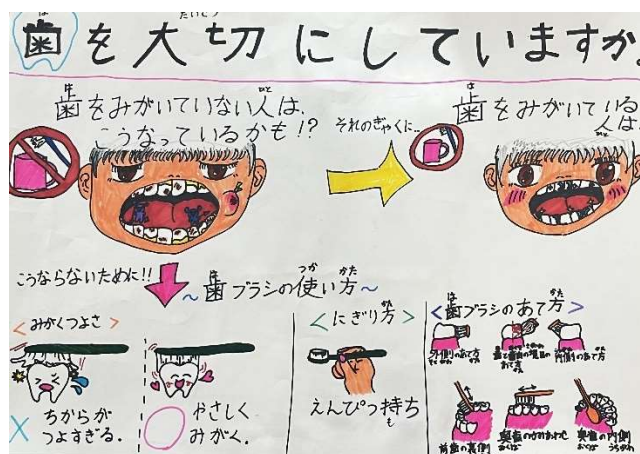 歯を大切にしていますか。
歯をみがいていない人は、
こうなっているかも!?
それのぎゃくに…
歯をみがいている
人は
こうならないために!!
~歯ブラシの使い方~
<みがくつよさ>
× ちからが
つよすぎる.
○ やさしく
みがく.
<にぎり方>
えんぴつ持ち
<歯ブラシのあて方>
外側のあて方
内側のあて方
前歯の裏側
奥歯のかみあわせ
奥歯の内側